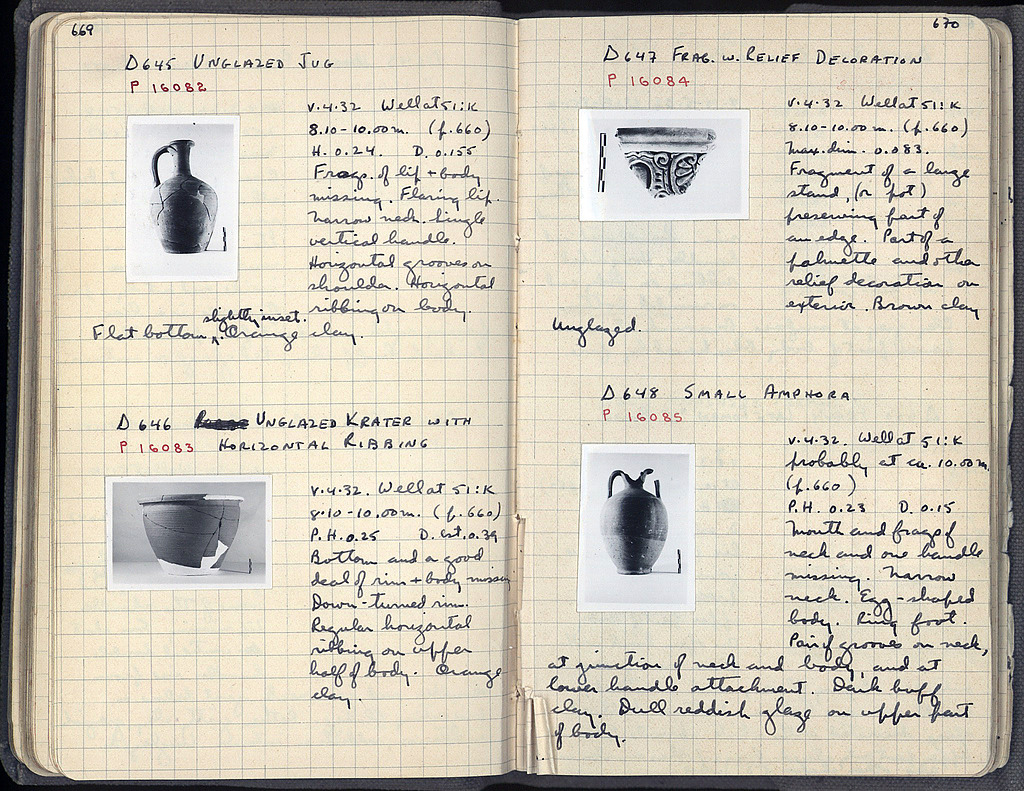 669
Δ 645 UNGLAZED JUG
P 16082
V.4.32 Well at 51:K
8.10-10.00 m. (p.660)
H. 0.24. D. 0.155
Frags. of lip + body
missing. Flaring lip.
Narrow neck. Single
vertical handle.
Horizontal grooves on
shoulder. Horizontal
ribbing on body.
slightly inset.
Flat bottom ^. Orange clay.
Δ 646 UNGLAZED KRATER WITH
P 16083 HORIZONTAL RIBBING
V.4.32. Well at 51:K
8.10-10.00 m. (p.660)
P.H. 0.25 D. est. 0.39
Bottom and a good
deal of rim + body missing
Down-turned rim.
Regular horizontal
ribbing on upper
half of body. Orange
clay.
670
Δ 647 FRAG. W. RELIEF DECORATION
P 16084
V.4.32 Well at 51:K
8.10-10.00 m. (p.660)
Max. dim. 0.083.
Fragment of a large
stand, (or pot)
preserving part of
an edge. Part of a
palmette and other
relief decoration on
exterior. Brown clay
Unglazed.
Δ 648 SMALL AMPHORA
P 16085
V.4.32. Well at 51:K
probably at ca. 10.00 m.
(p.660)
P.H. 0.23 D. 0.15
Mouth and frags of
neck and one handle
missing. Narrow
neck. Egg-shaped
body. Ring foot.
Pair of grooves on neck,
at junction of neck and body, and at
lower handle attachment. Dark buff
clay. Dull reddish glaze on upper part
of body.